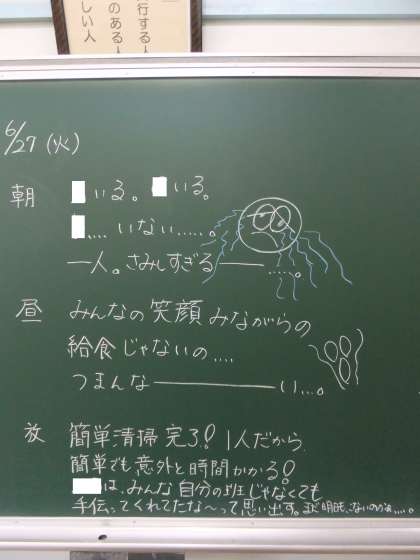 行する人
のある人
しい人
6/27(火)
朝
いる。いる。
.... いない.....。
一人。さみしすぎる――....。
昼
みんなの笑顔みながらの
給食じゃないの....
つまんな――――い...。
放
簡単清掃完了!1人だから
簡単でも意外と時間かかる!
は、みんな自分の班じゃなくても
手伝ってくれてたな〜って思い出す。